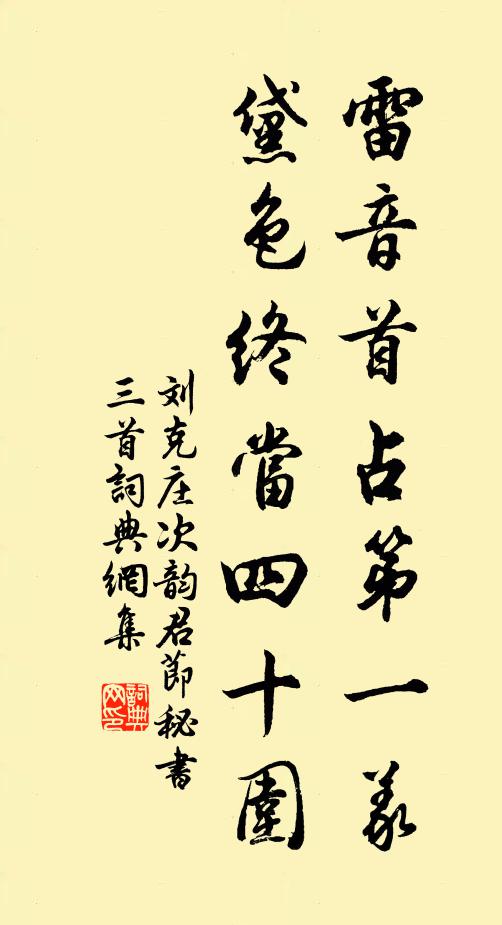 雷音首占第一義
黛色終當四十圍
刘克庄次韵君節秘書
三首詞典網集
詞典网印